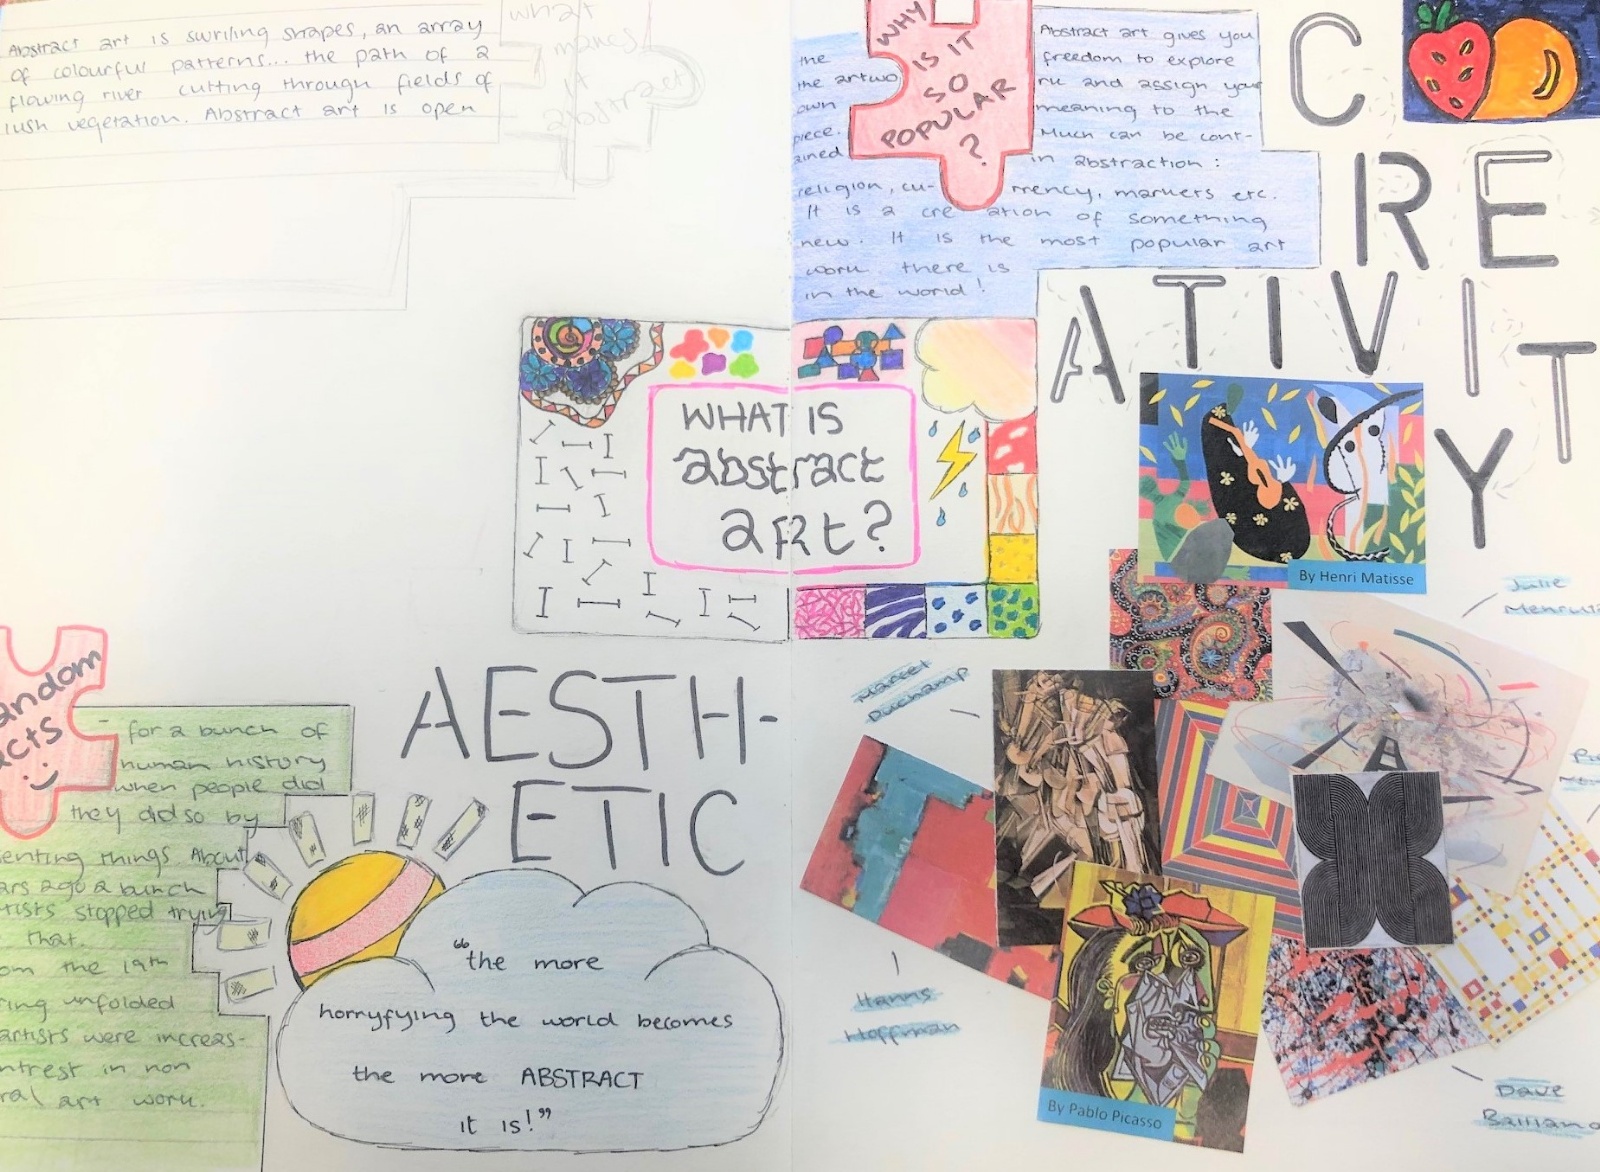 Abstract art is swriling shapes, an array
of colourful patterns... the path of a
flowing river cutting through fields of
lush vegetation. Abstract art is open
what
makes
it
abstract
WHY
IS IT
SO
POPULAR
?
Abstract art gives you
the freedom to explore
the artwork and assign your
own meaning to the
piece. Much can be cont-
ained in abstraction:
religion, currency, markers etc.
It is a creation of something
new. It is the most popular art
work there is
in the world!
CRE
ATIVIT
Y
WHAT IS
abstract
aRt?
By Henri Matisse
Julie
Marcel
Duchamp
andom
acts
- for a bunch of
human history
when people did
they did so by
senting things About
ars ago a bunch
tists stopped trying
that.
om the 19th
ring unfolded
artists were increas-
ntrest in non
ral art work.
AESTH-
ETIC
"the more
horryfying the world becomes
the more ABSTRACT
it is!"
Hanns
Hoffman
By Pablo Picasso
Dave